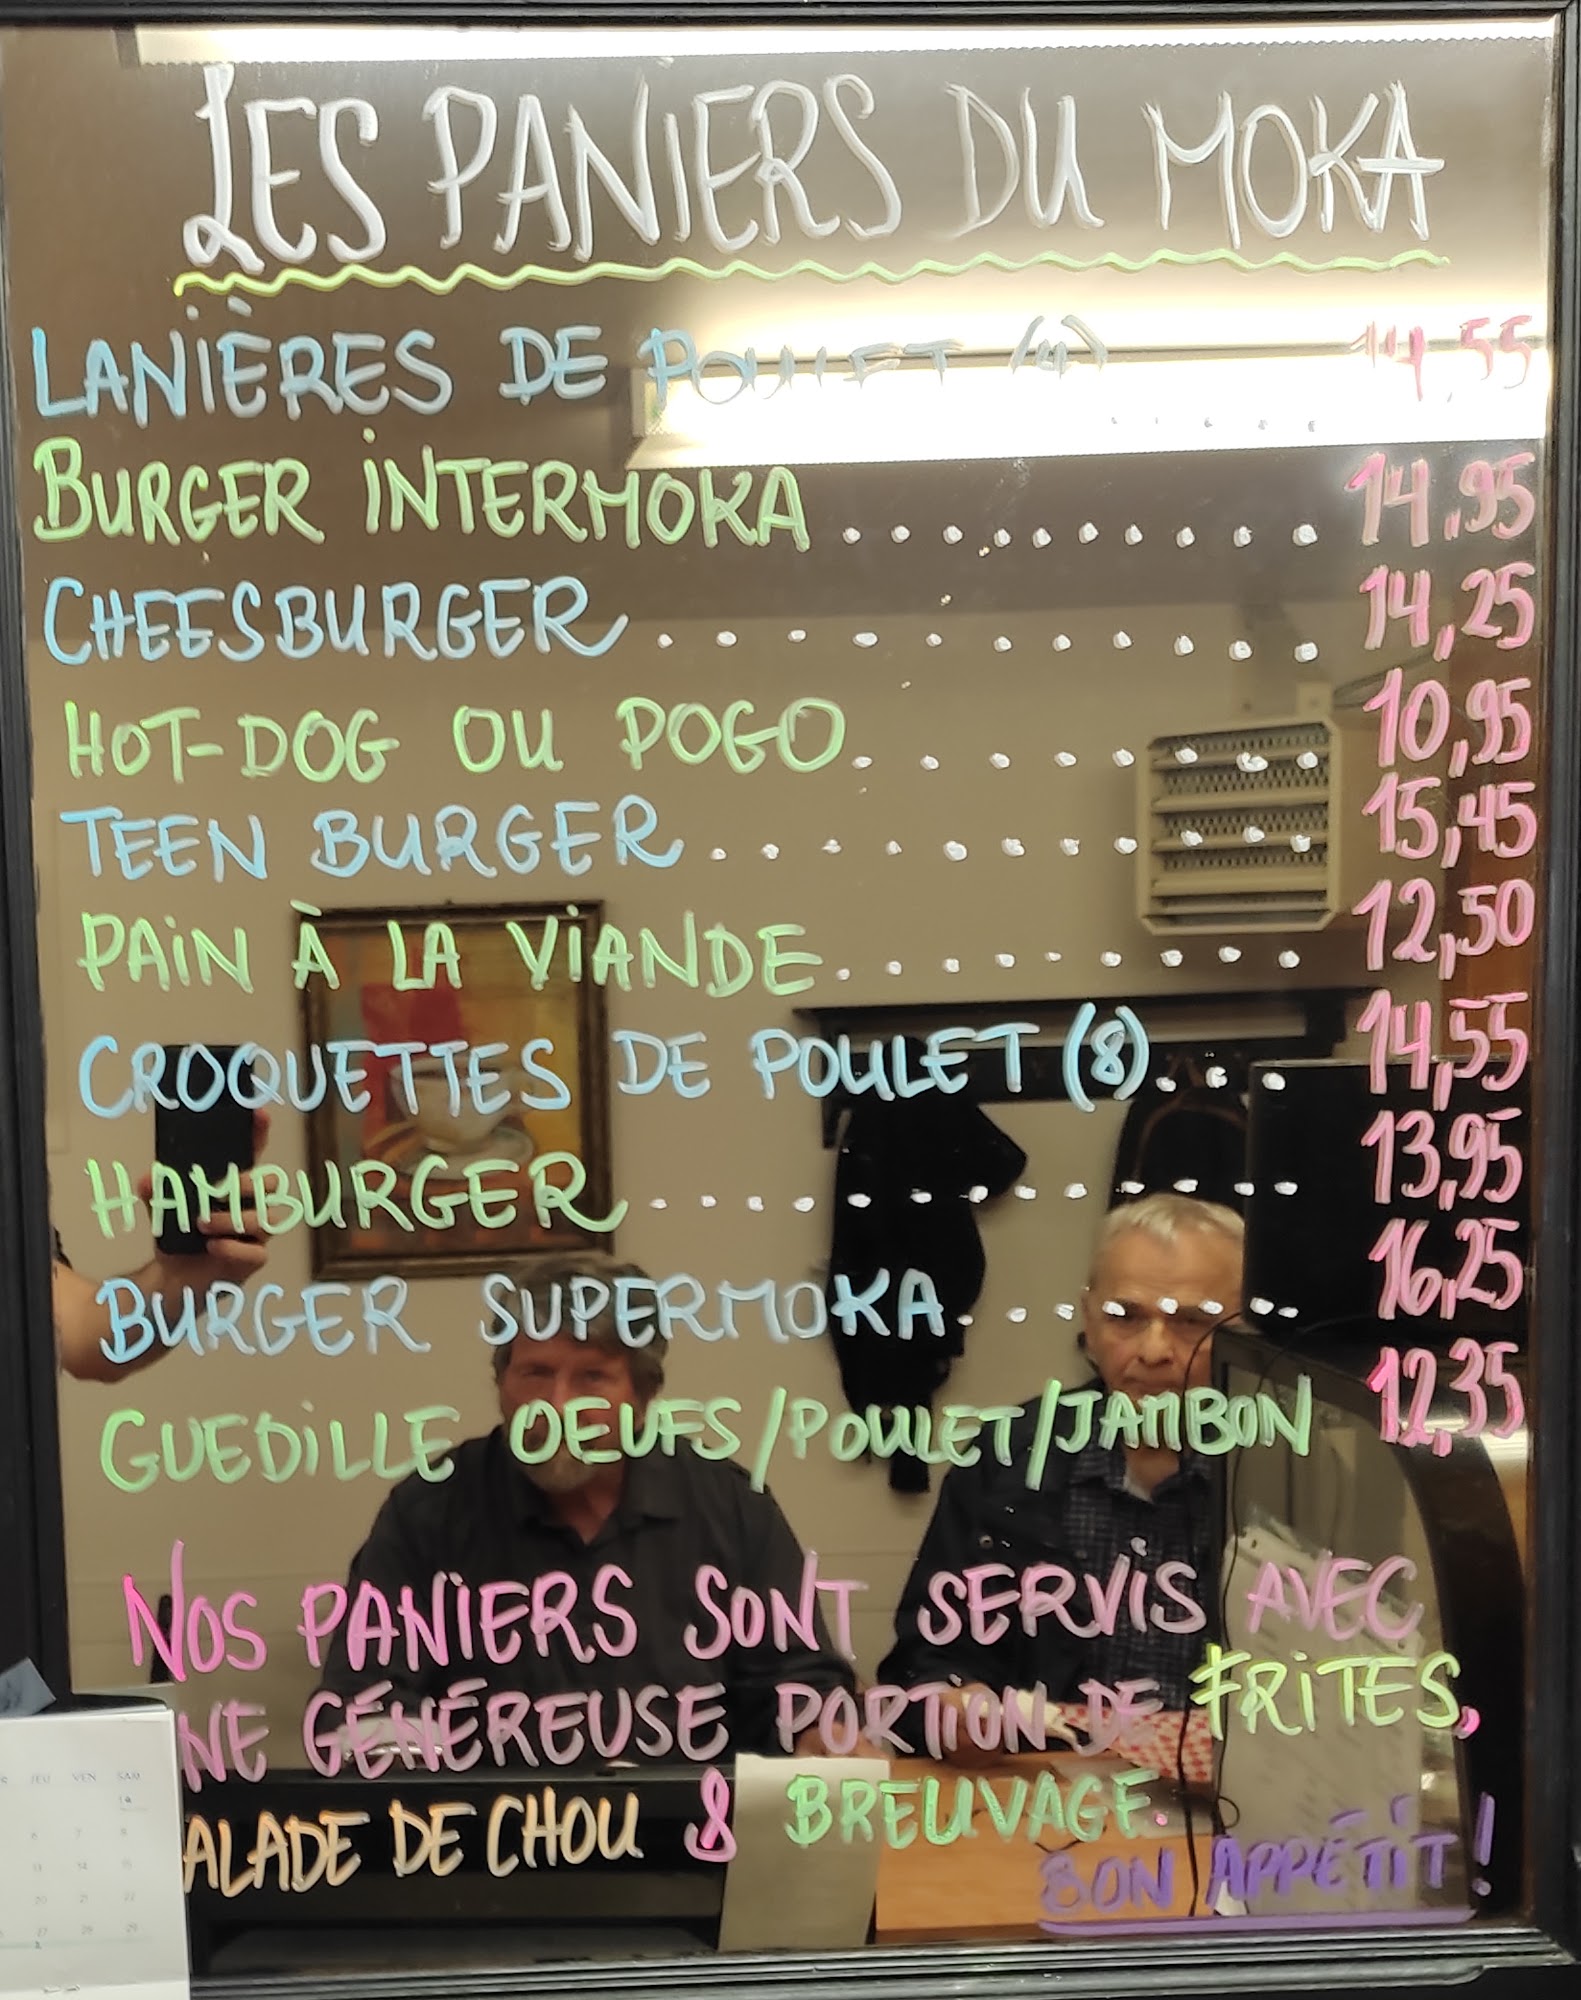 LES PANIERS DU MOKA
LANIÈRES DE POULET (4) ..... 14,55
BURGER INTERMOKA.......... 14,95
CHEESBURGER........... 14,25
HOT-DOG OU POGO........ 10,95
TEEN BURGER........... 15,45
PAIN À LA VIANDE......... 12,50
CROQUETTES DE POULET (8)... 14,55
HAMBURGER............ 13,95
BURGER SUPERMOKA....... 16,25
GUEDILLE OEUFS/POULET/JAMBON 12,35
NOS PANIERS SONT SERVIS AVEC
NE GÉNÉREUSE PORTION DE FRITES,
ALADE DE CHOU & BREUVAGE.
BON APPÉTIT!
JEU VEN SAM
6 7 8
13 14 15
20 21 22
27 28 29